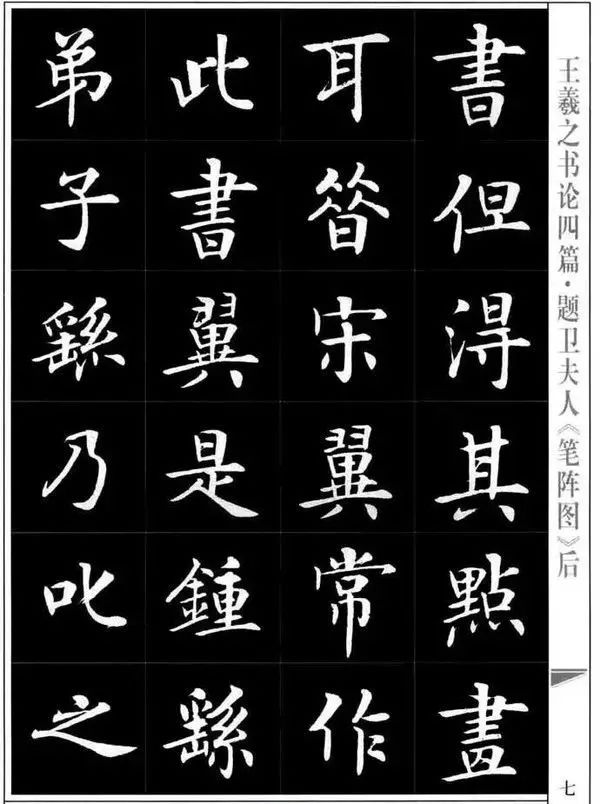 書但得其點畫
耳昔宋翼常作
此書翼是鍾繇
弟子繇乃叱之
王羲之书论四篇·题卫夫人《笔阵图》后
七